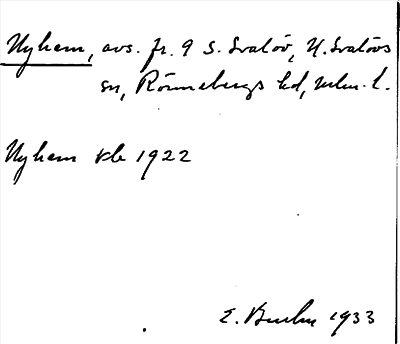 Nyhem, avs. fr. 9 S. Svalöv, N. Svalövs
sn, Rönnebergs hd, mlm. l.
Nyhem kb 1922
E. 1933